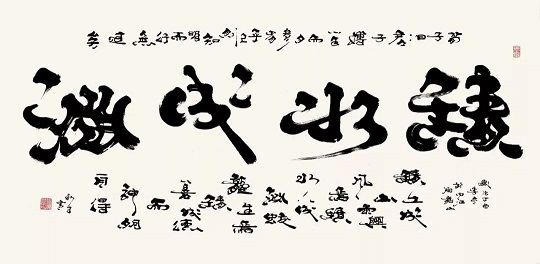 荀子曰君子博學而日參省乎己則知明而行無過矣
積水成淵
積土成
山
風雨興
焉積
水成
淵蛟
龍生焉
積
善成德
而
神明
自得
歲次丁酉